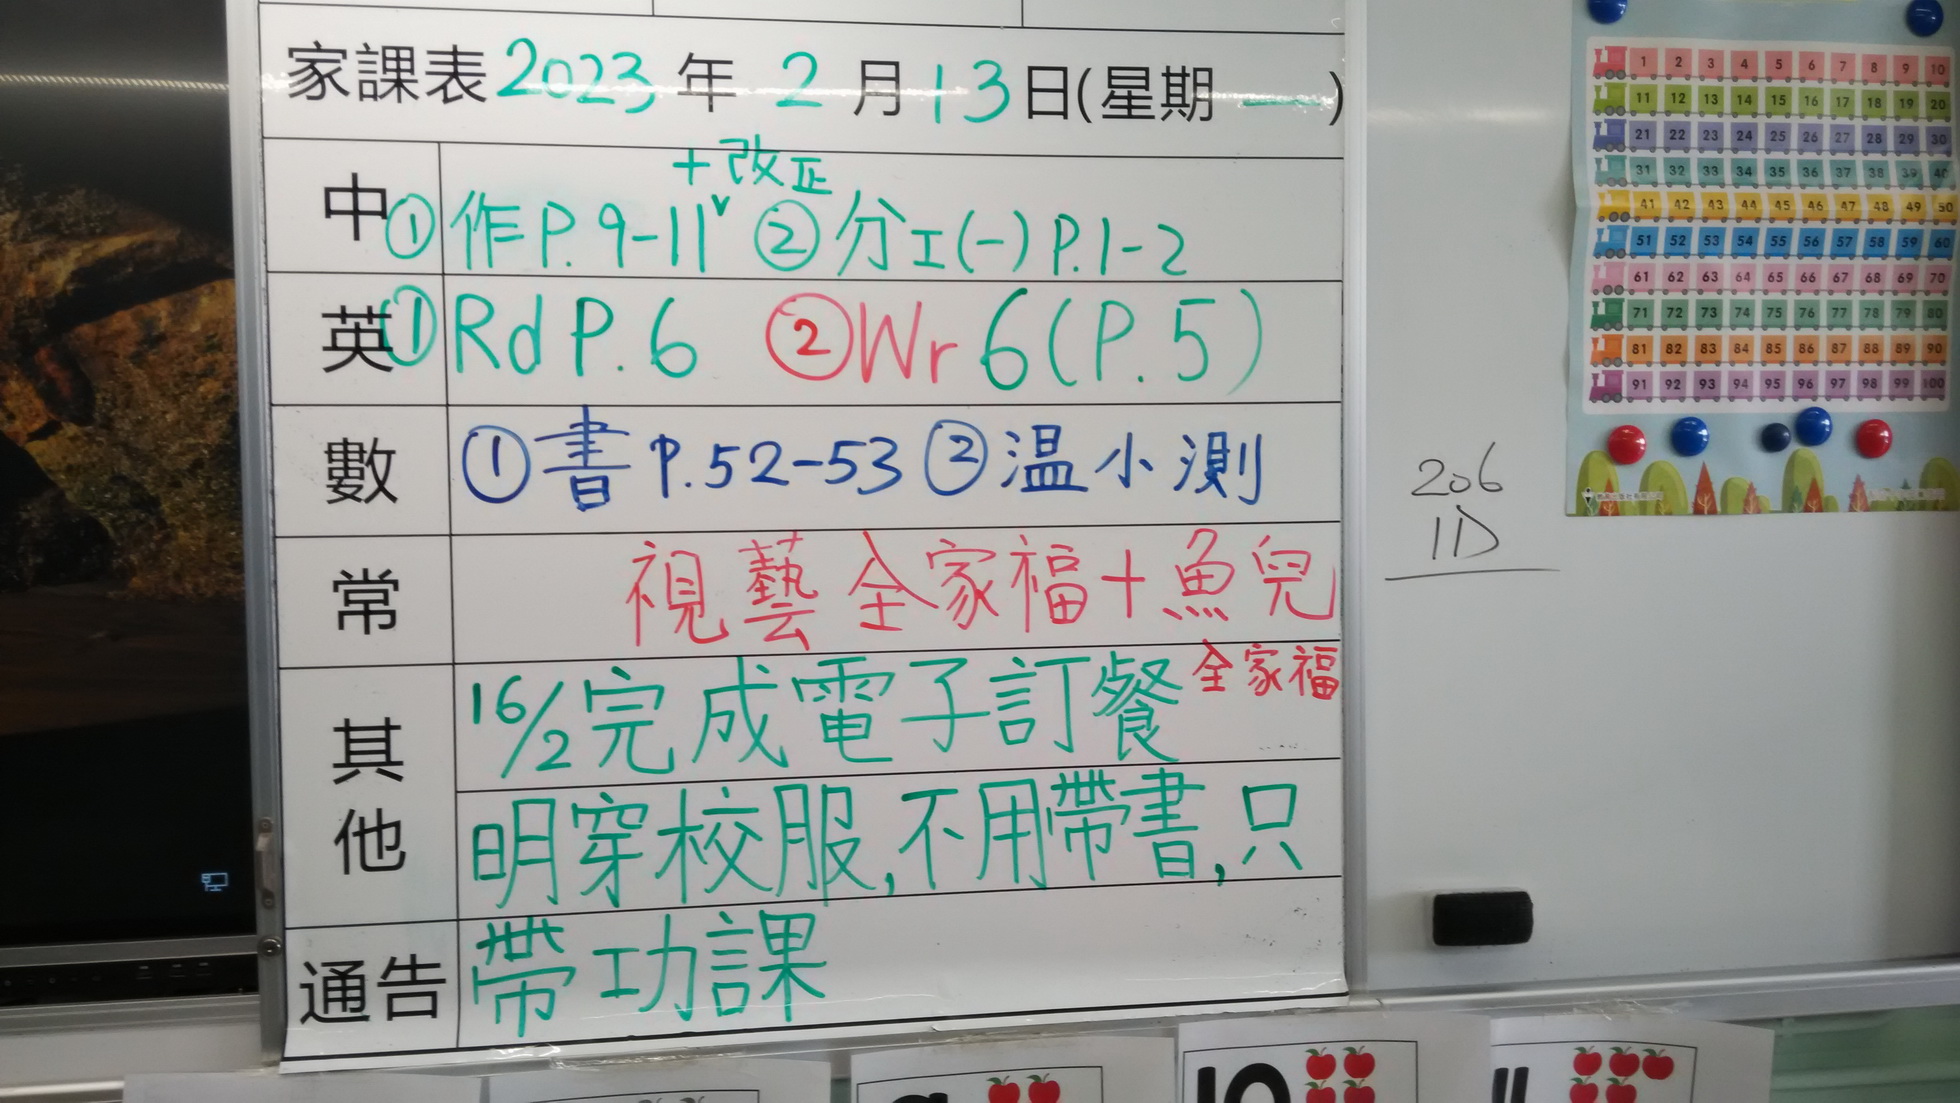 家課表2023年 2月13日(星期一)
+改正
中 ①作P.9-11ˇ ②分工(一)P.1-2
英 ①Rd P.6 ②Wr 6(P.5)
數 ①書P.52-53 ②温小測
常 視藝全家福+魚兒
全家福
其他 16/2完成電子訂餐
明穿校服,不用帶書,只
通告 帶功課
206
1D
1 2 3 4 5 6 7 8 9 10
11 12 13 14 15 16 17 18 19 20
21 22 23 24 25 26 27 28 29 30
31 32 33 34 35 36 37 38 39 40
41 42 43 44 45 46 47 48 49 50
51 52 53 54 55 56 57 58 59 60
61 62 63 64 65 66 67 68 69 70
71 72 73 74 75 76 77 78 79 80
81 82 83 84 85 86 87 88 89 90
91 92 93 94 95 96 97 98 99 100
10